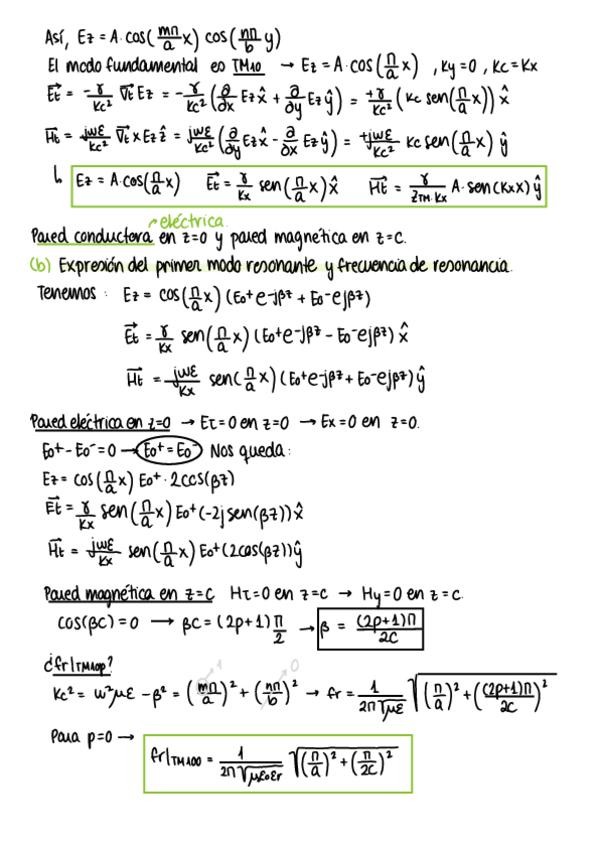 Así, Ez = A·cos(mπ/a x) cos(nπ/b y)
El modo fundamental es TM10 → Ez = A·cos(π/a x) , Ky=0 , Kc=Kx
Et = -γ/Kc² ∇t Ez = -γ/Kc² (∂/∂x Ez x̂ + ∂/∂y Ez ŷ) = +γ/Kc² (Kc sen(π/a x)) x̂
Ht = jωε/Kc² ∇t x Ez ẑ = jωε/Kc² (∂/∂y Ez x̂ - ∂/∂x Ez ŷ) = +jωε/Kc² Kc sen(π/a x) ŷ
Ez = A·cos(π/a x) Et = γ/Kx sen(π/a x) x̂ Ht = γ/ZTM·Kx A·sen(Kx x) ŷ
eléctrica.
Pared conductora en z=0 y pared magnética en z=c.
(b) Expresión del primer modo resonante y frecuencia de resonancia.
Tenemos : Ez = cos(π/a x) (E0+e-jβz + E0-ejβz)
Et = γ/Kx sen(π/a x) (E0+e-jβz - E0-ejβz) x̂
Ht = jωε/Kx sen(π/a x) (E0+e-jβz + E0-ejβz) ŷ
Pared eléctrica en z=0 → Eτ=0 en z=0 → Ex=0 en z=0.
E0+ - E0- = 0 → E0+ = E0- Nos queda:
Ez = cos(π/a x) E0+·2cos(βz)
Et = γ/Kx sen(π/a x) E0+(-2j sen(βz)) x̂
Ht = jωε/Kx sen(π/a x) E0+(2cos(βz)) ŷ
Pared magnética en z=c Hτ=0 en z=c → Hy=0 en z=c.
cos(βc)=0 → βc = (2p+1) π/2 → β = (2p+1)π/2c
¿fr|TM10p?
1 0
Kc² = ω²με - β² = (mπ/a)² + (nπ/b)² → fr = 1/2π√με √(π/a)² + ((2p+1)π/2c)²
Para p=0 →
fr|TM100 = 1/2π√με0εr √(π/a)² + (π/2c)²